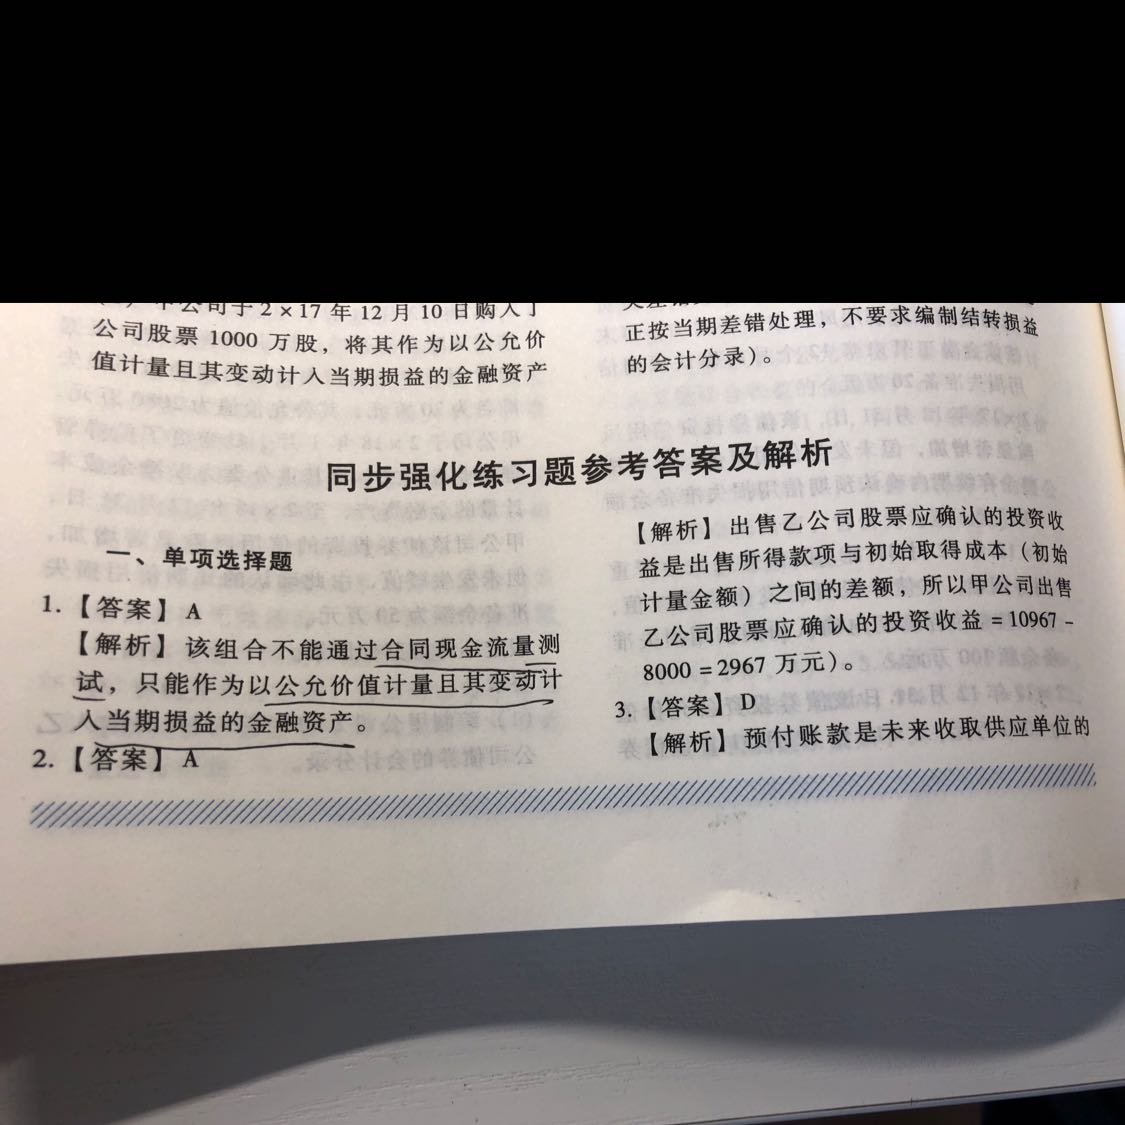 甲公司于2×17年12月10日购入丁
公司股票1000万股，将其作为以公允价
值计量且其变动计入当期损益的金融资产
正按当期差错处理，不要求编制结转损益
的会计分录）。
同步强化练习题参考答案及解析
一、单项选择题
1.【答案】A
【解析】该组合不能通过合同现金流量测
试，只能作为以公允价值计量且其变动计
入当期损益的金融资产。
2.【答案】A
【解析】出售乙公司股票应确认的投资收
益是出售所得款项与初始取得成本（初始
计量金额）之间的差额，所以甲公司出售
乙公司股票应确认的投资收益=10967-
8000=2967万元）。
3.【答案】D
【解析】预付账款是未来收取供应单位的